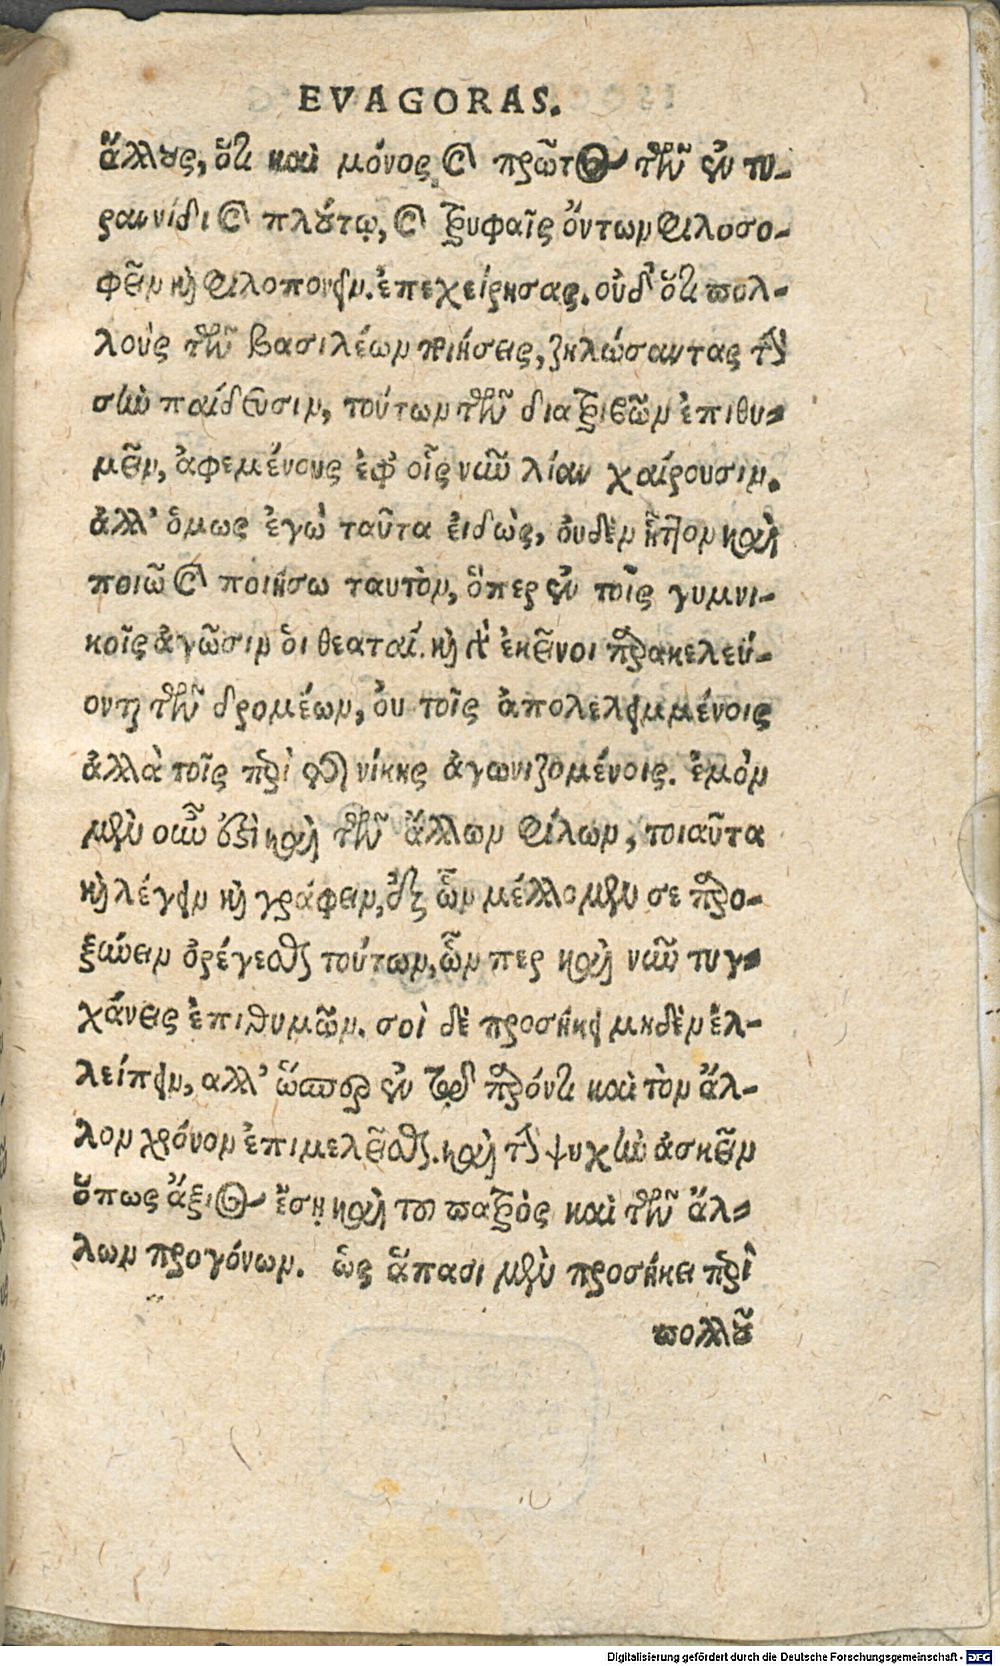 EVAGORAS.
ἄλλους, ὅτι καὶ μόνος καὶ πρῶτος τῶν ἐν τυ-
ραννίδι καὶ πλούτῳ, καὶ τρυφαῖς ὄντων φιλοσο-
φεῖν καὶ φιλοπονεῖν ἐπεχείρησας. οὐδ' ὅτι πολ-
λοὺς τῶν βασιλέων ποιήσεις, ζηλώσαντας τὴν
σὴν παίδευσιν, τούτων τῶν διατριβῶν ἐπιθυ-
μεῖν, ἀφεμένους ἐφ' οἷς νῦν λίαν χαίρουσιν.
ἀλλ' ὅμως ἐγὼ ταῦτα εἰδὼς, οὐδὲν ἧττον καὶ
ποιῶ καὶ ποιήσω ταυτὸν, ὅπερ ἐν τοῖς γυμνι-
κοῖς ἀγῶσιν οἱ θεαταί. καὶ γὰρ ἐκεῖνοι παρακελεύ-
ονται τῶν δρομέων, οὐ τοῖς ἀπολελειμμένοις
ἀλλὰ τοῖς περὶ τῆς νίκης ἀγωνιζομένοις. ἐμὸν
μὲν οὖν ἐστὶ καὶ τῶν ἄλλων φίλων, τοιαῦτα
καὶ λέγειν καὶ γράφειν, ἐξ ὧν μέλλομέν σε παρο-
ξύνειν ὀρέγεσθαι τούτων, ὧν περ καὶ νῦν τυγ-
χάνεις ἐπιθυμῶν. σοὶ δὲ προσήκει μηδὲν ἐλ-
λείπειν, αλλ' ὥσπερ ἐν τῷ παρόντι καὶ τὸν ἄλ-
λον χρόνον ἐπιμελεῖσθαι. καὶ τὴν ψυχὴν ἀσκεῖν
ὅπως ἄξιος ἔσῃ καὶ τοῦ πατρὸς καὶ τῶν ἄλ-
λων προγόνων. ὡς ἅπασι μὲν προσήκει περὶ
πολλοῦ
Digitalisierung gefördert durch die Deutsche Forschungsgemeinschaft - DFG